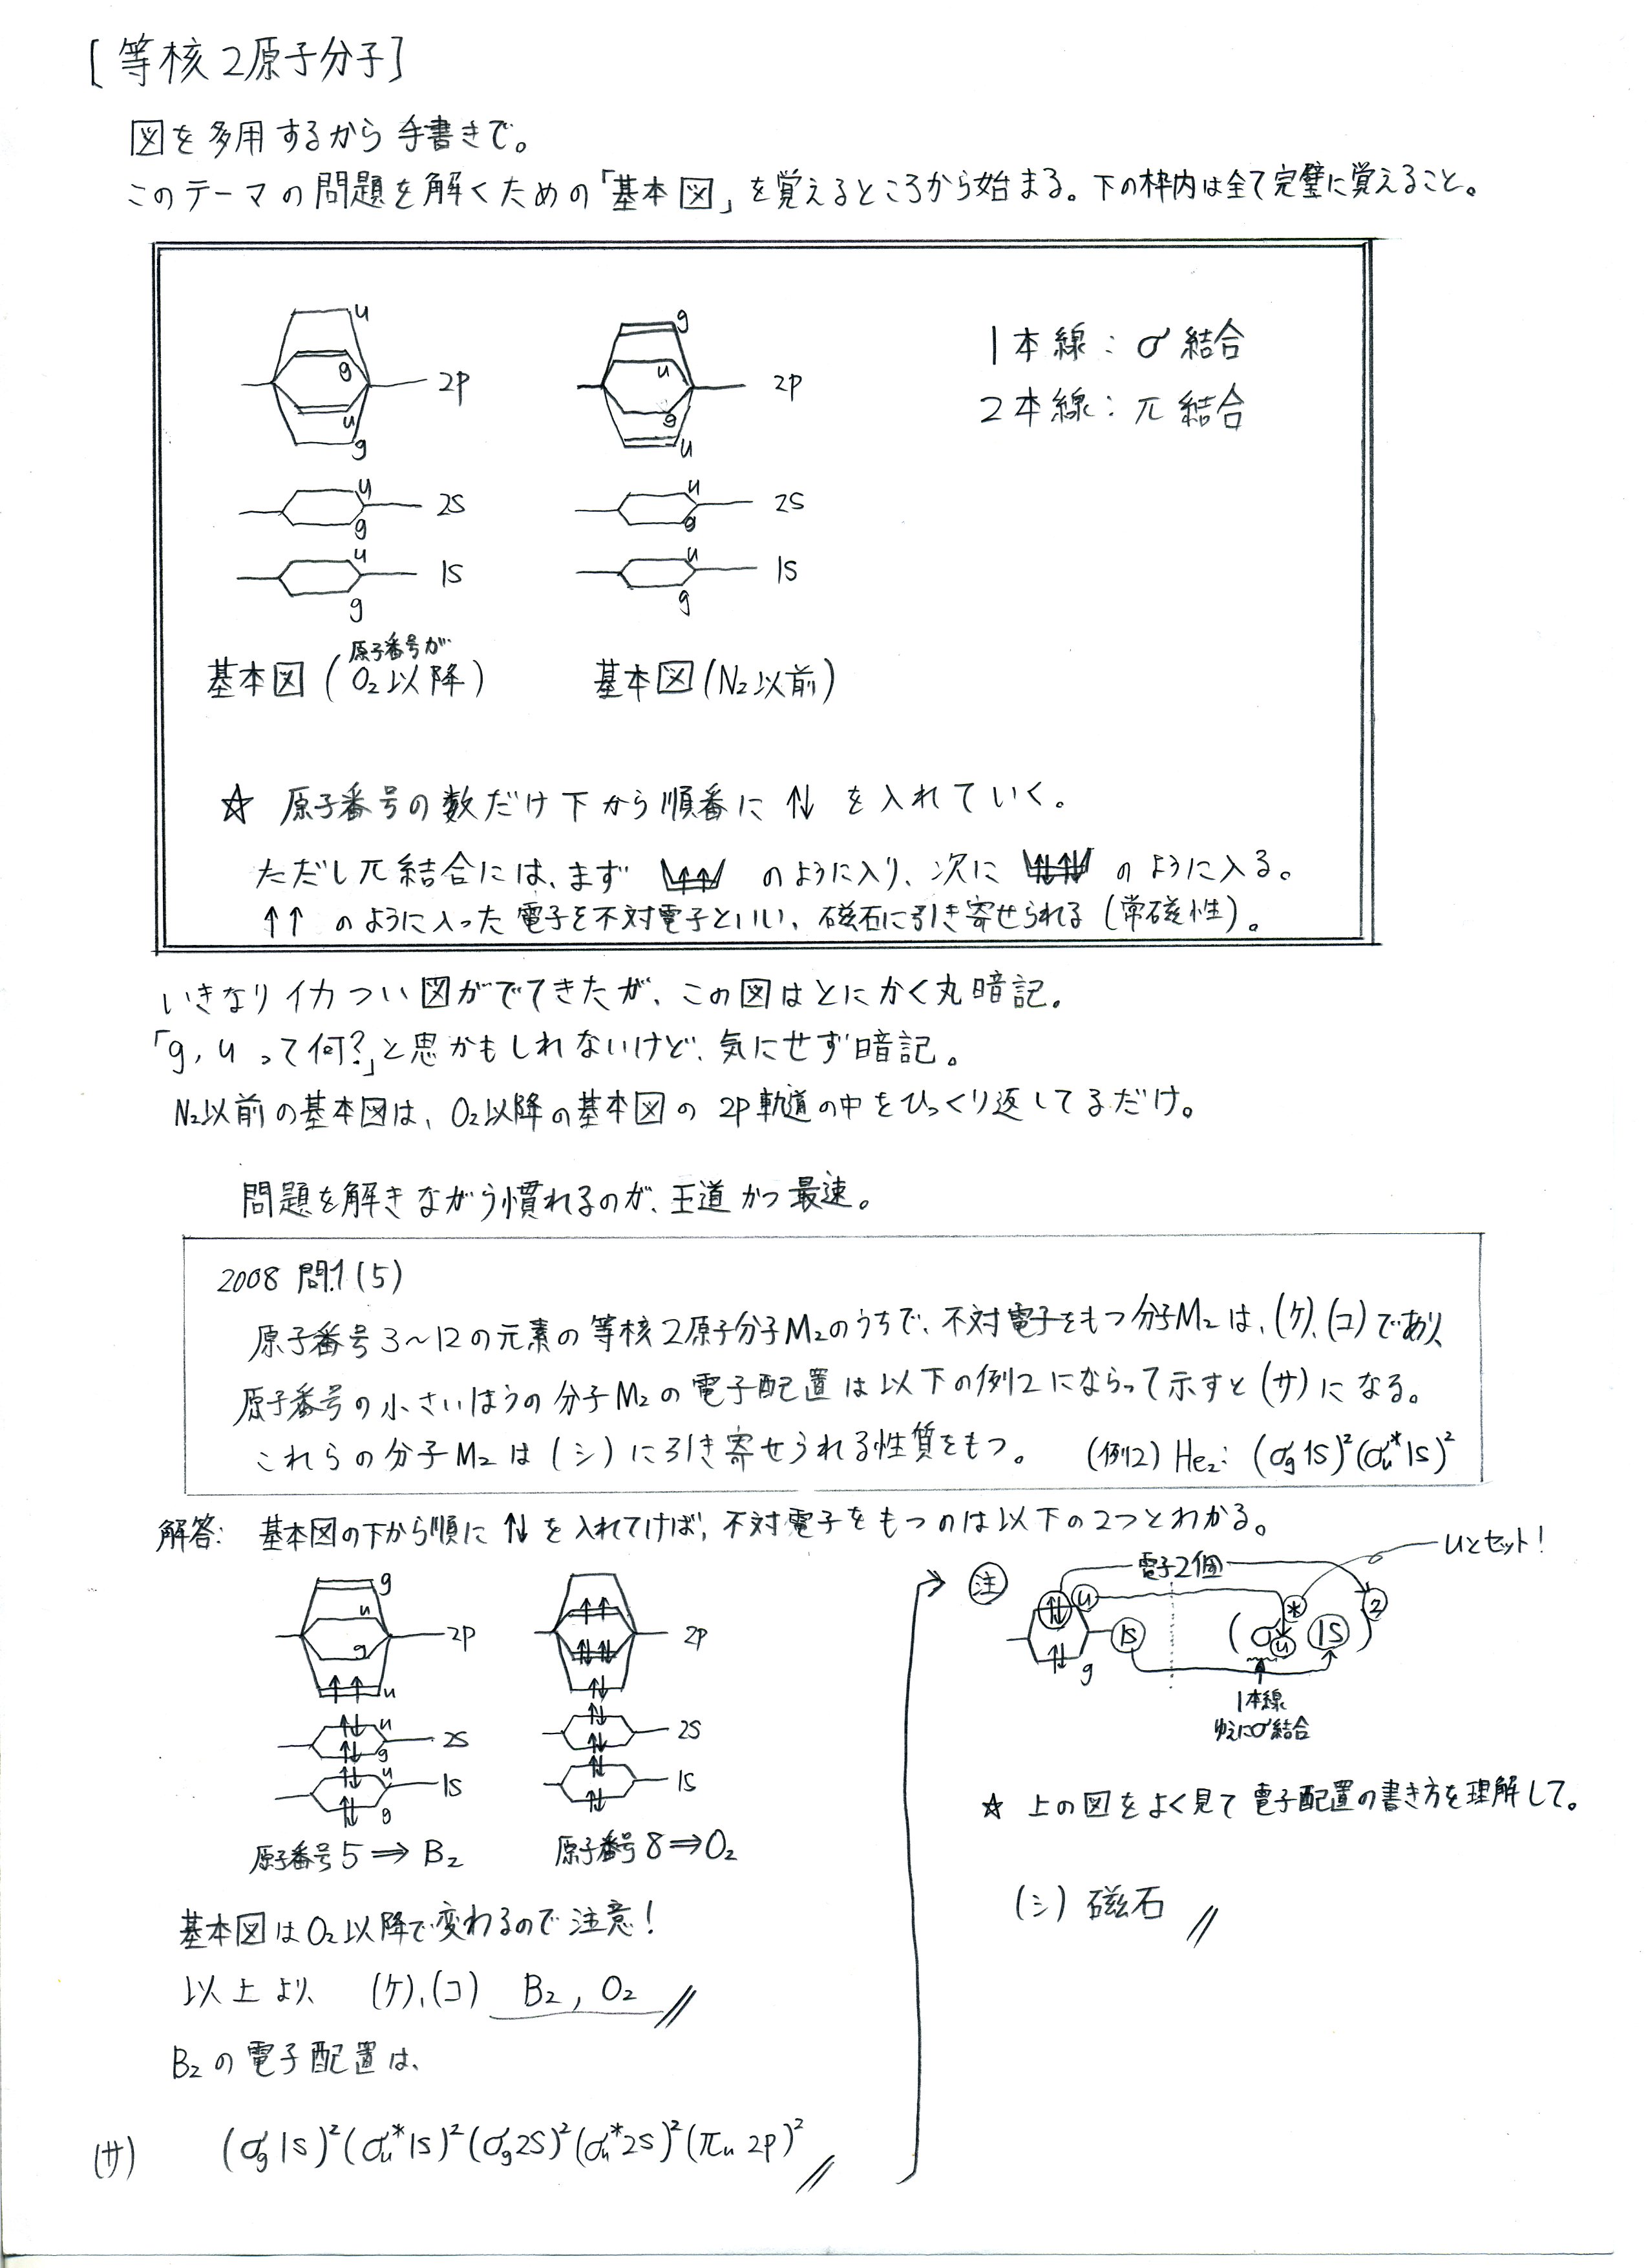 [等核2原子分子]
図を多用するから手書きで。
このテーマの問題を解くための「基本図」を覚えるところから始まる。下の枠内は全て完璧に覚えること。
u
g
u
g
2p
u
g
2s
u
g
1s
基本図(原子番号がO₂以降)
g
u
g
u
2p
u
g
2s
u
g
1s
基本図(N₂以前)
1本線:σ結合
2本線:π結合
☆ 原子番号の数だけ下から順番に ↑↓ を入れていく。
ただしπ結合には、まず ↑↑ のように入り、次に ↑↓↑↓ のように入る。
↑↑ のように入った電子を不対電子といい、磁石に引き寄せられる(常磁性)。
いきなりイカつい図がでてきたが、この図はとにかく丸暗記。
「g, uって何?」と思かもしれないけど、気にせず暗記。
N₂以前の基本図は、O₂以降の基本図の2p軌道の中をひっくり返してるだけ。
問題を解きながら慣れるのが、王道かつ最速。
2008 問.1(5)
原子番号3~12の元素の等核2原子分子M₂のうちで、不対電子をもつ分子M₂は、(ケ)、(コ)であり、
原子番号の小さいほうの分子M₂の電子配置は以下の例2にならって示すと(サ)になる。
これらの分子M₂は(シ)に引き寄せられる性質をもつ。 (例2) He₂: (σg1s)²(σu*1s)²
解答: 基本図の下から順に ↑↓ を入れてけば、不対電子をもつのは以下の2つとわかる。
g
u
g
2p
↑↑ u
↑↓ u
↑↓ g
2s
↑↓ u
↑↓ g
1s
原子番号5⇒B₂
↑↑
↑↓↑↓
2p
↑↓
↑↓
↑↓
2s
↑↓
↑↓
1s
原子番号8⇒O₂
基本図はO₂以降で変わるので注意!
以上より、 (ケ)、(コ) B₂, O₂
B₂の電子配置は、
(サ) (σg1s)²(σu*1s)²(σg2s)²(σu*2s)²(πu 2p)²
注
電子2個
uとセット!
↑↓ u
↑↓ g
1s
(σu* 1s)²
1本線
ゆえにσ結合
☆ 上の図をよく見て電子配置の書き方を理解して。
(シ) 磁石